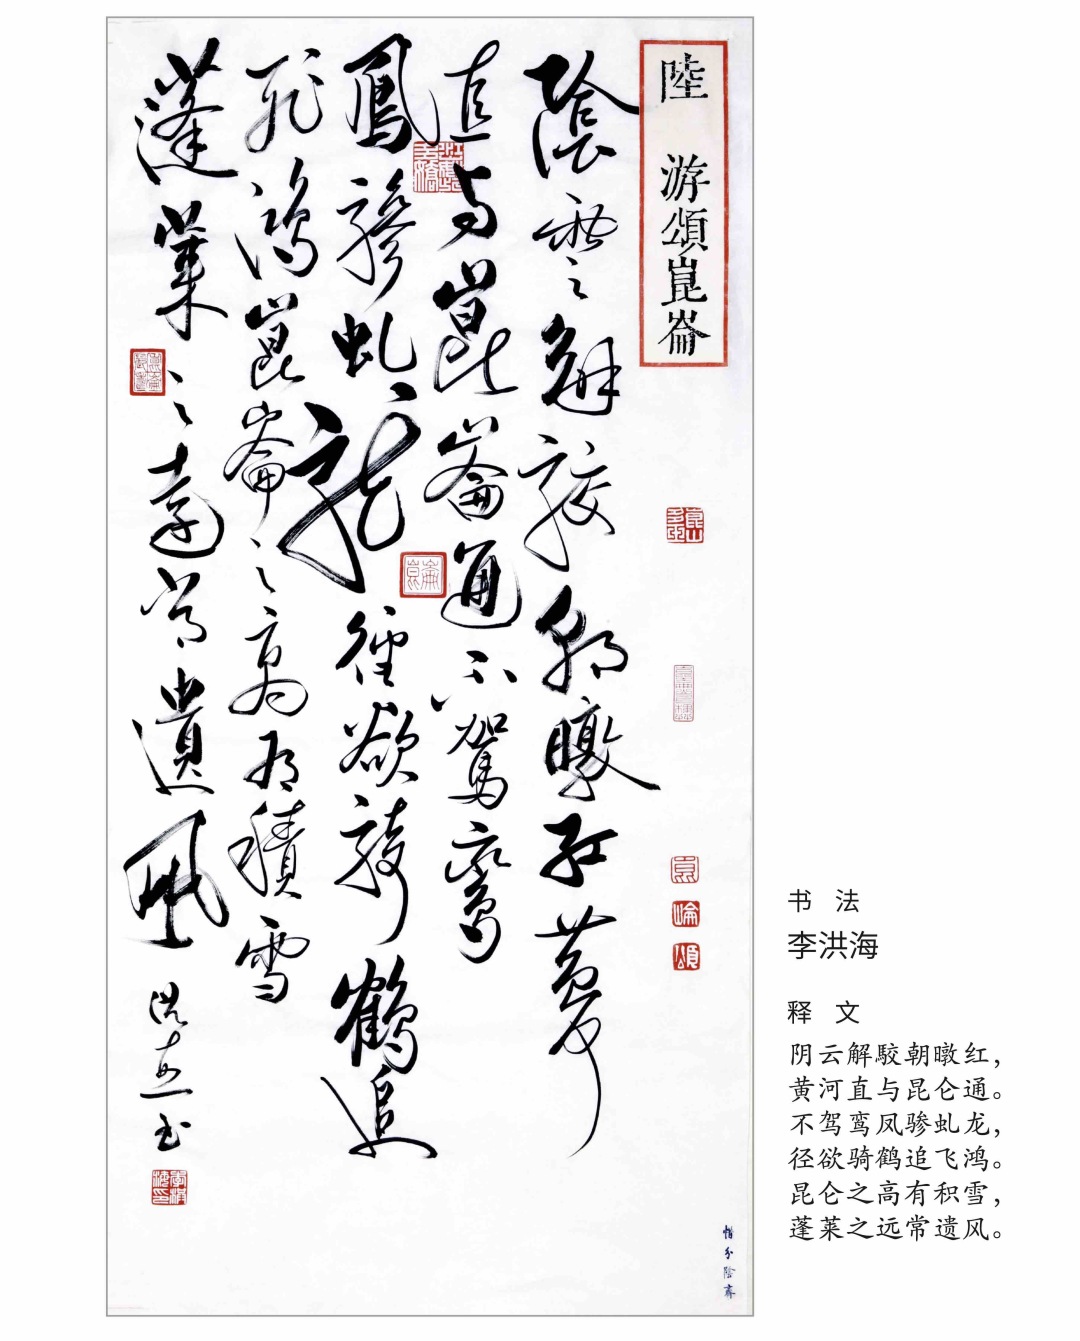 陸 游頌崑崙
陰雲解駮朝暾紅黄河
直与崑崙通不駕鸞
鳳驂虬龍徑欲騎鶴追
飛鴻崑崙之高有積雪
蓬莱之遠常遺風 洪海书
惜分陰齋
书 法
李洪海
释 文
阴云解駮朝暾红，
黄河直与昆仑通。
不驾鸾凤骖虬龙，
径欲骑鹤追飞鸿。
昆仑之高有积雪，
蓬莱之远常遗风。